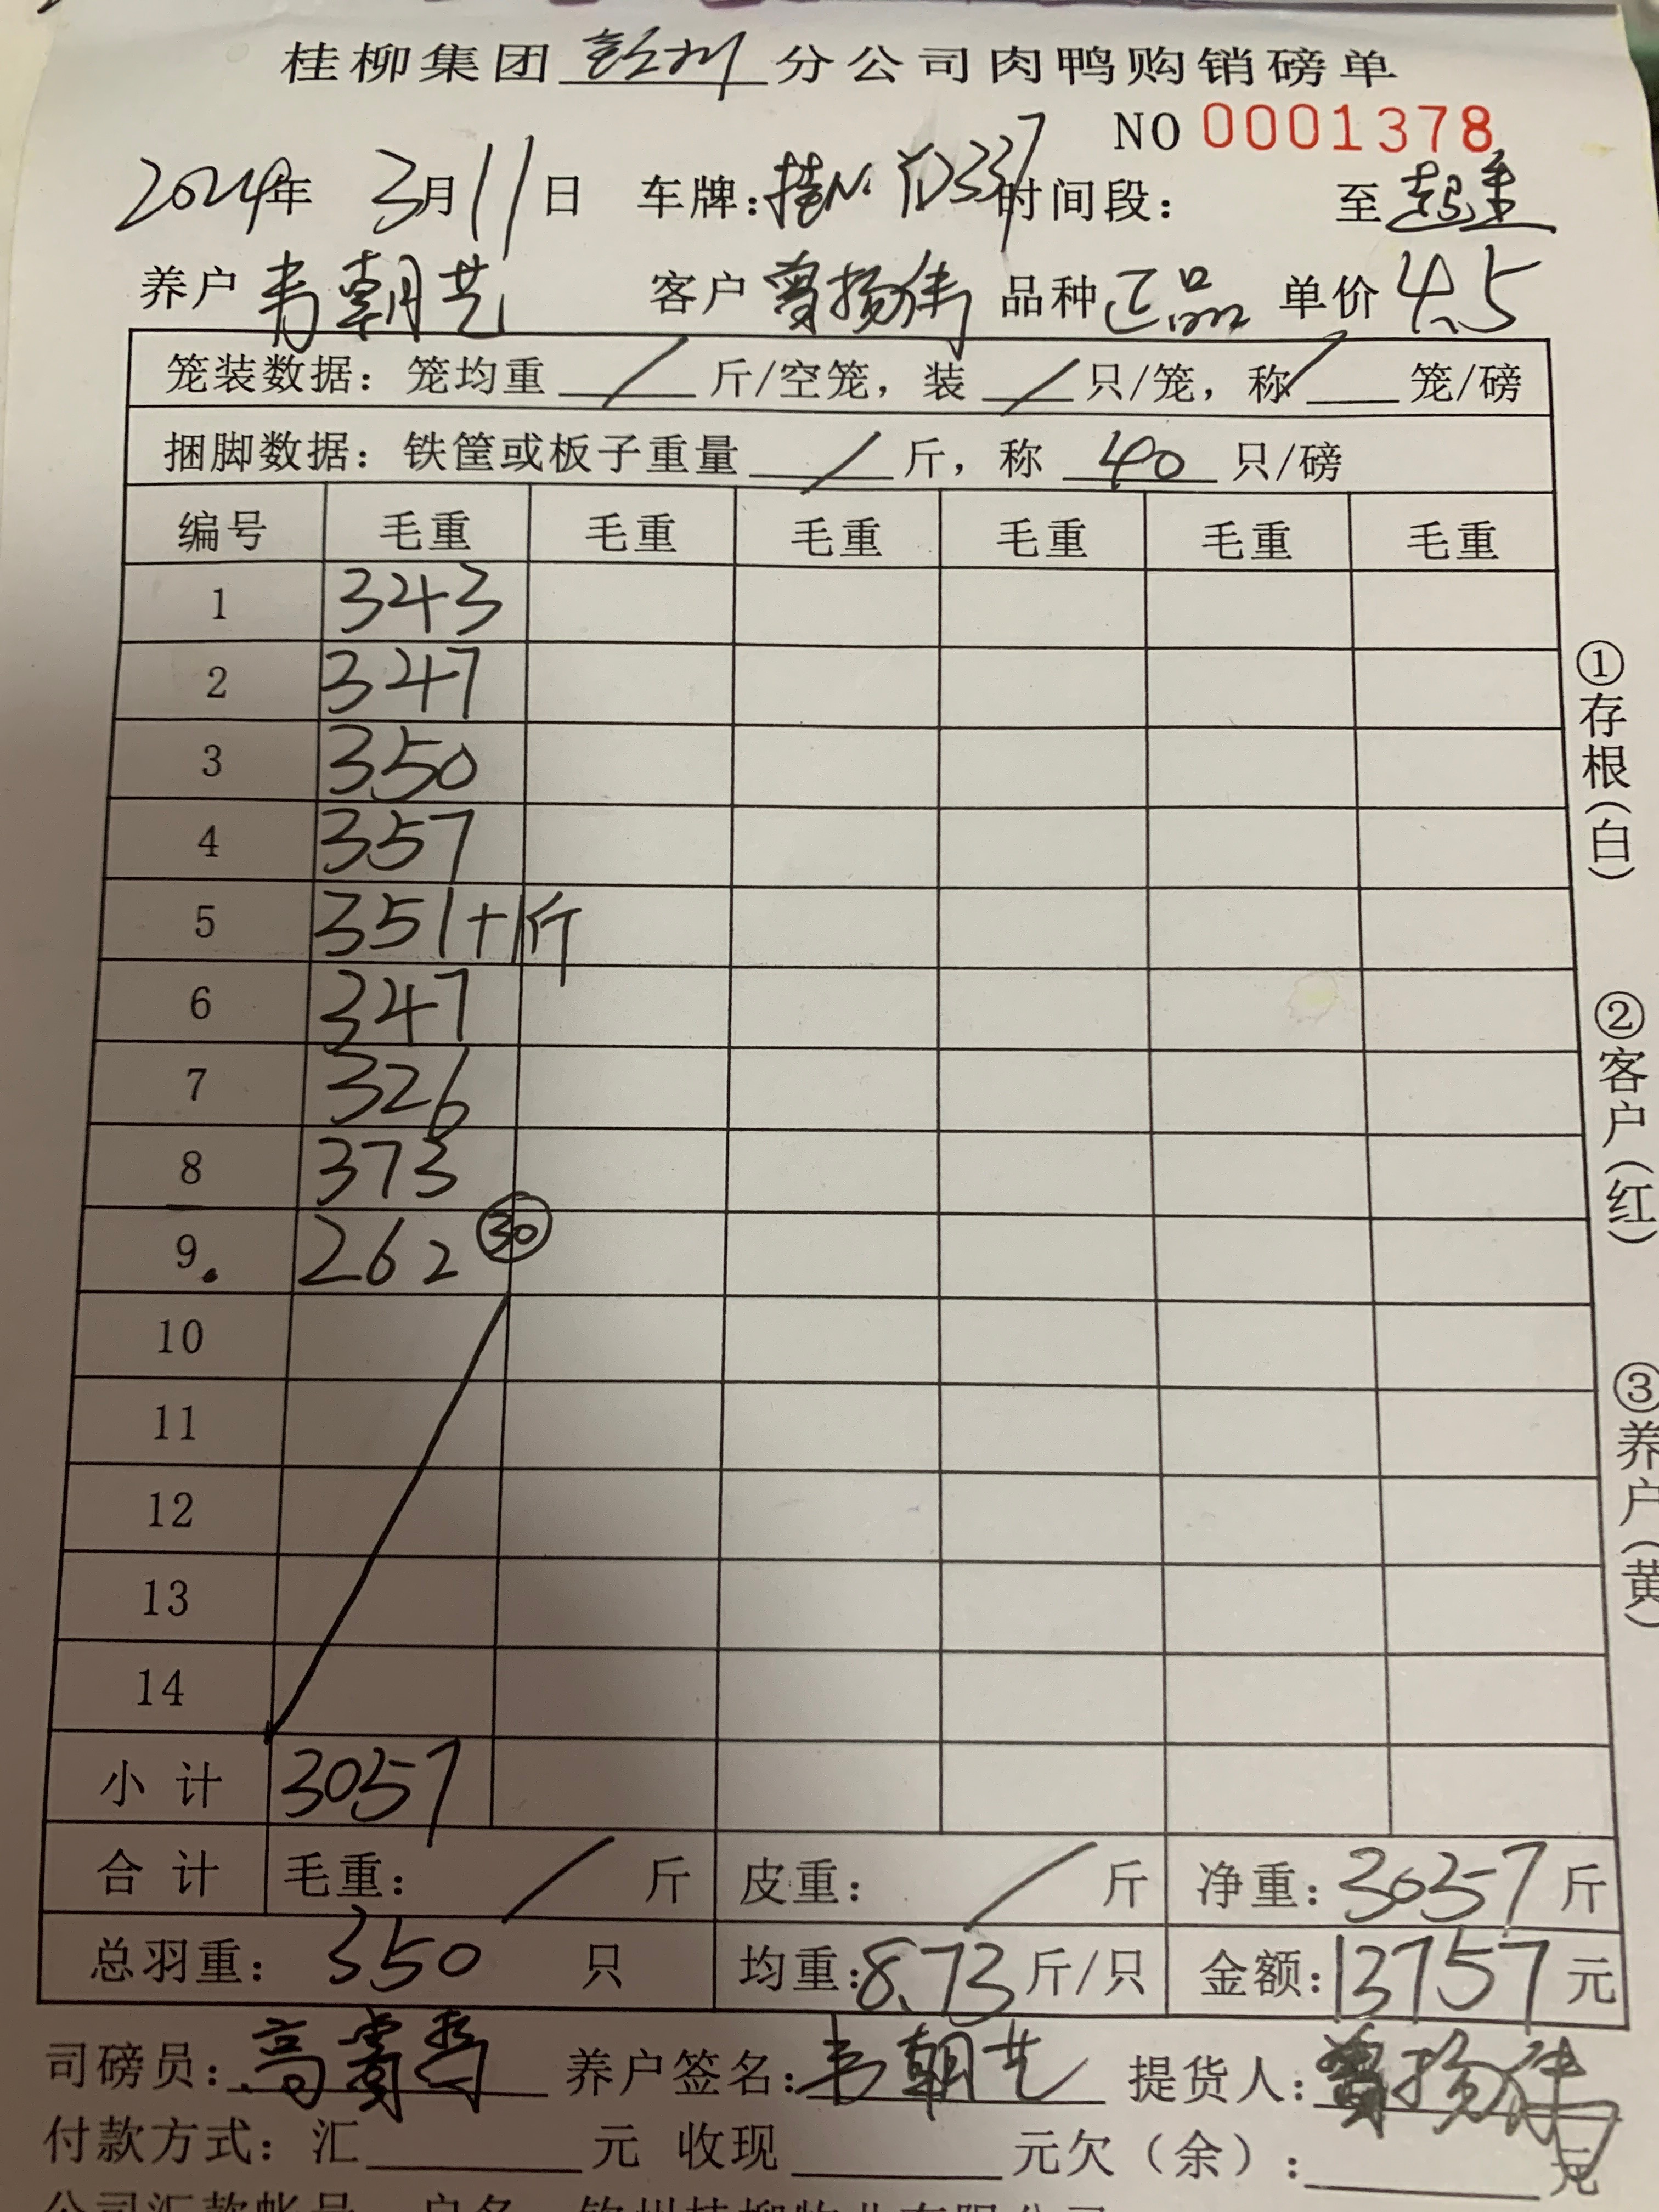 桂柳集团 分公司肉鸭购销磅单
NO 0001378
2024年 3月11日 车牌: 桂N· D337 时间段: 至 起重
养户 韦朝艺 客户 曾扬伟 品种 正品 单价 4.5
笼装数据: 笼均重 / 斤/空笼, 装 / 只/笼, 称 / 笼/磅
捆脚数据: 铁筐或板子重量 / 斤, 称 40 只/磅
编号 毛重 毛重 毛重 毛重 毛重 毛重
1 343
2 347
3 350
4 357
5 351+1斤
6 347
7 326
8 373
9. 262 ㉚
10
11
12
13
14
小计 3057
合计 毛重: / 斤 皮重: / 斤 净重: 3057 斤
总羽重: 350 只 均重: 8.73 斤/只 金额: 13757 元
司磅员: 高 养户签名: 韦朝艺 提货人: 曾扬伟
付款方式: 汇 元 收现 元欠(余): 元
公司汇款帐号 户名
①存根(白)
②客户(红)
③养户(黄)